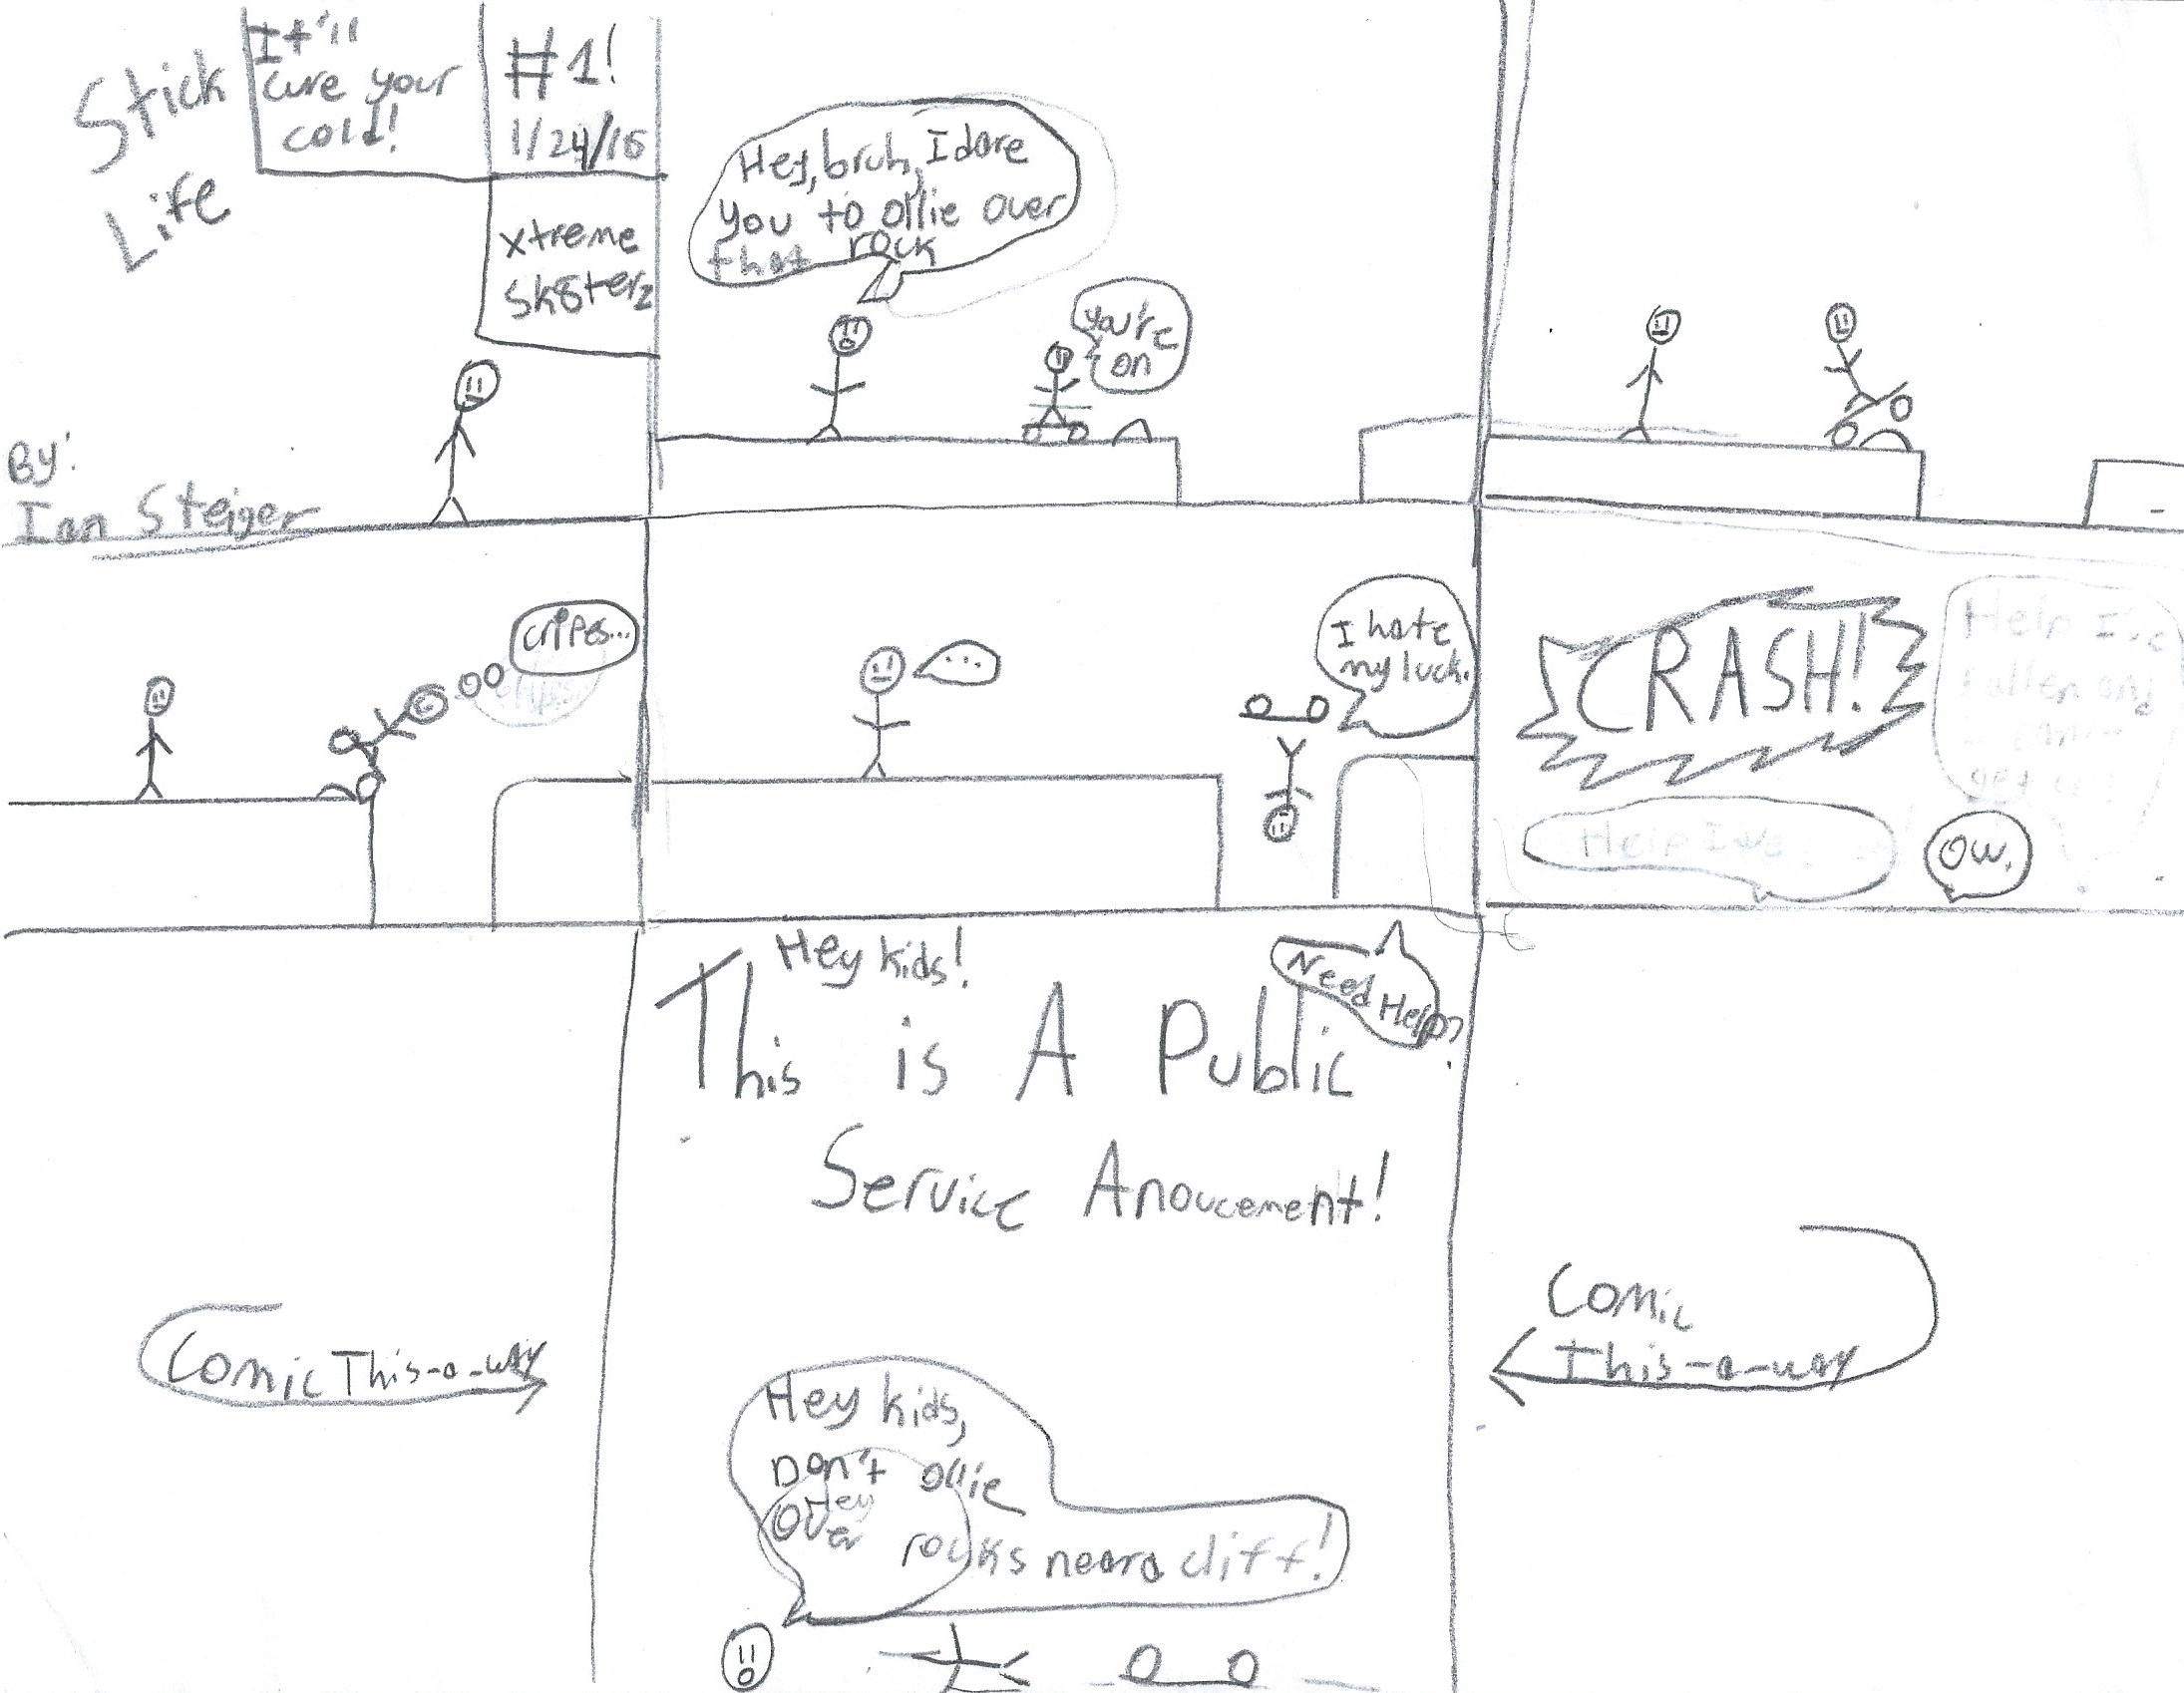 Stick
Life
It'll
cure your
cold!
#1!
1/24/16
xtreme
sk8terz
By:
Ian Steiger
Hey, bruh, I dare
you to ollie over
that rock
you're
on
cripes...
...
I hate
my luck.
CRASH!
Help I've
fallen and
get
Help I've
OW.
Hey kids!
Need Help?
This is A Public
Service Anoucement!
Comic This-a-way
Comic
This-a-way
Hey kids,
Don't ollie
over
Hey
rocks near a cliff!